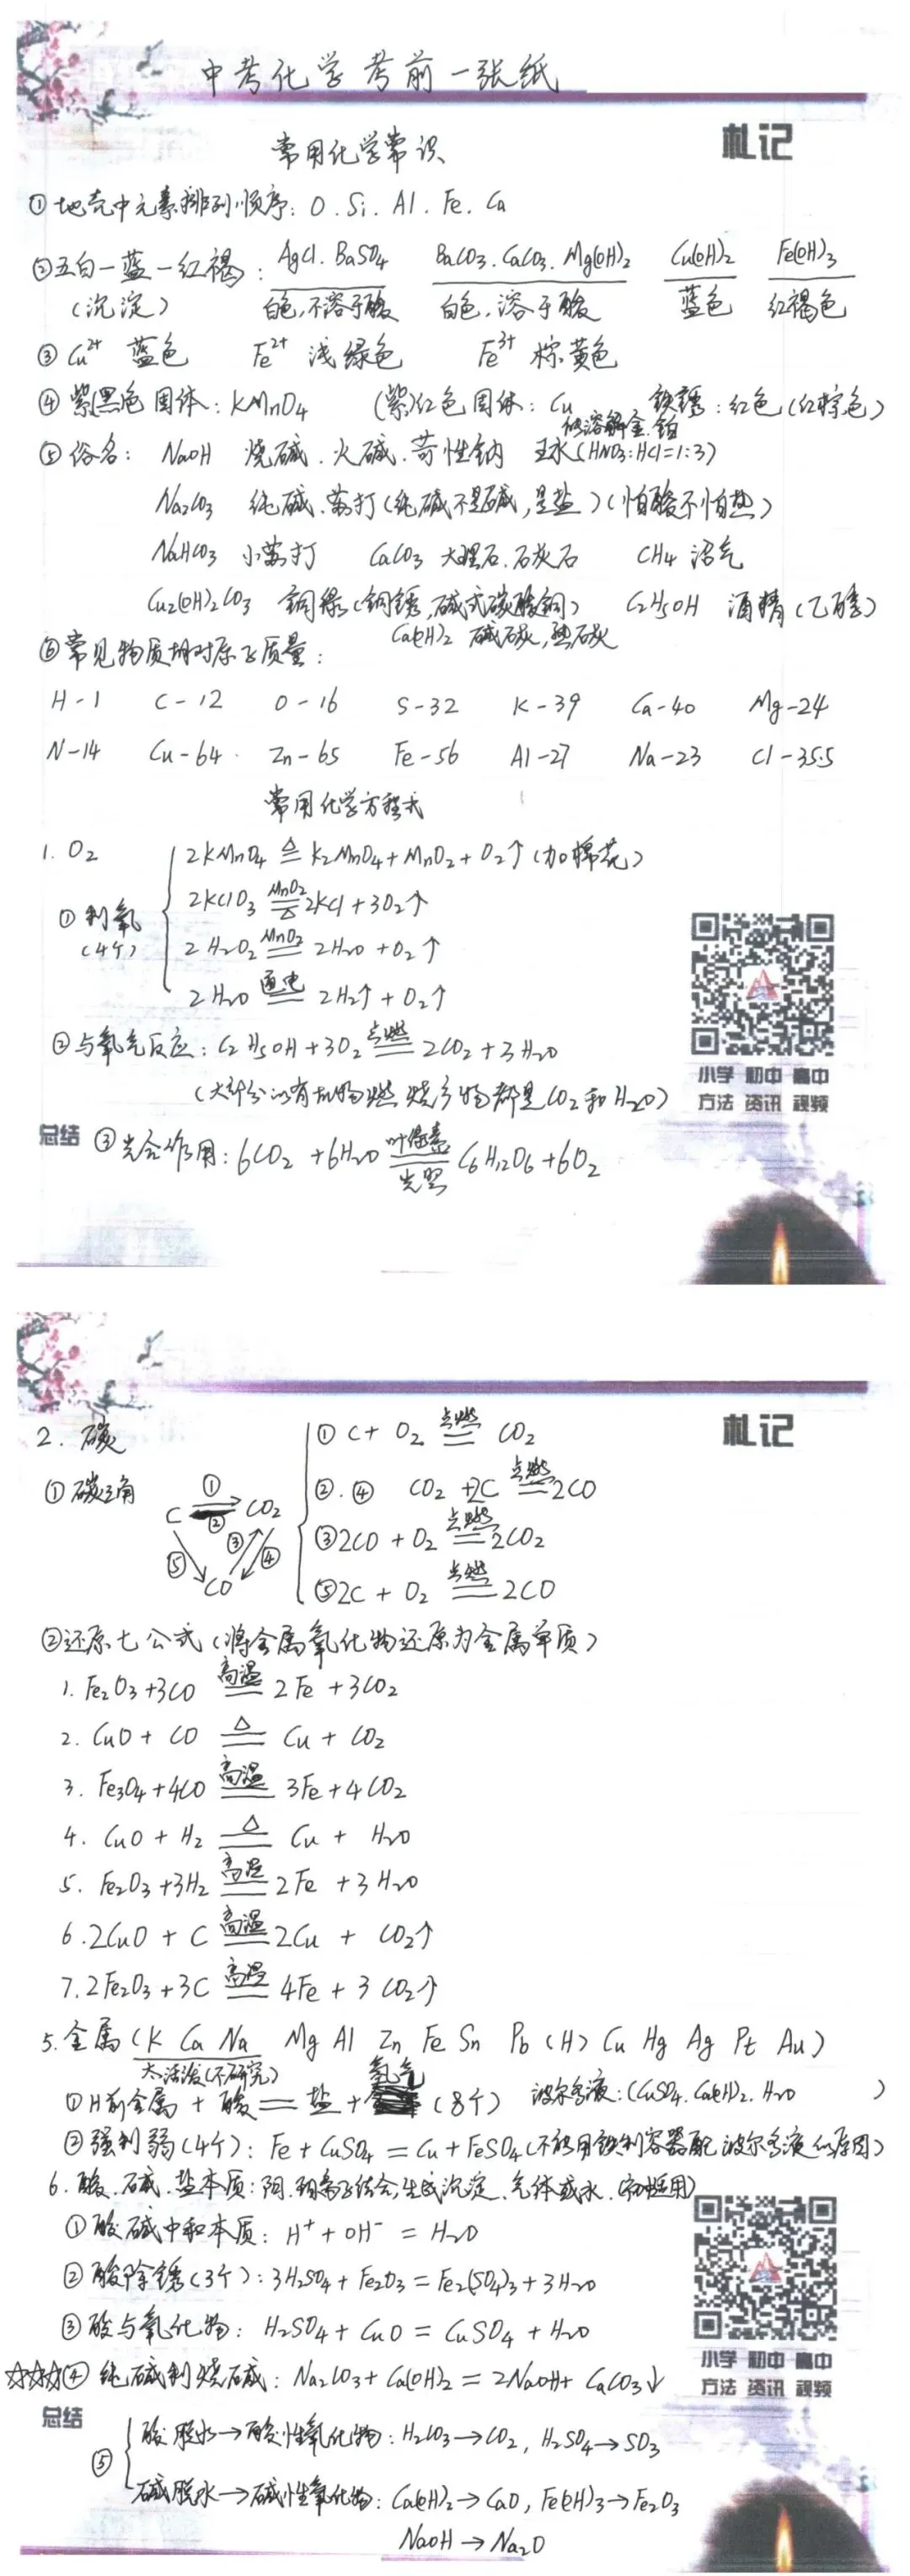 中考化学考前一张纸
札记
常用化学常识
①地壳中元素排列顺序：O．Si．Al．Fe．Ca
②五白一蓝一红褐：AgCl．BaSO₄ BaCO₃．CaCO₃．Mg(OH)₂ Cu(OH)₂ Fe(OH)₃
（沉淀） 白色，不溶于酸 白色，溶于酸 蓝色 红褐色
③Cu²⁺ 蓝色 Fe²⁺ 浅绿色 Fe³⁺ 棕黄色
④紫黑色固体：KMnO₄ (紫)红色固体：Cu 铁锈：红色(红棕色)
能溶解金．铂
⑤俗名： NaOH 烧碱．火碱．苛性钠 王水(HNO₃:HCl=1:3)
Na₂CO₃ 纯碱．苏打(纯碱不是碱，是盐)(怕酸不怕热)
NaHCO₃ 小苏打 CaCO₃ 大理石．石灰石 CH₄ 沼气
Cu₂(OH)₂CO₃ 铜绿(铜锈，碱式碳酸铜) C₂H₅OH 酒精(乙醇)
Ca(OH)₂ 碱碳，熟碳
⑥常见物质相对原子质量：
H-1 C-12 O-16 S-32 K-39 Ca-40 Mg-24
N-14 Cu-64 Zn-65 Fe-56 Al-27 Na-23 Cl-35.5
常用化学方程式
1. O₂
①制氧
(4个)
2KMnO₄ ≜ K₂MnO₄+MnO₂+O₂↑(加棉花)
2KClO₃ MnO₂ == △ 2KCl+3O₂↑
2H₂O₂ MnO₂ == 2H₂O+O₂↑
2H₂O 通电 == 2H₂↑+O₂↑
②与氧气反应：C₂H₅OH+3O₂ 点燃 == 2CO₂+3H₂O
(大部分的有机物燃烧产物都是CO₂和H₂O)
小学 初中 高中
方法 资讯 视频
总结
③光合作用：6CO₂+6H₂O 叶绿素 == 光照 C₆H₁₂O₆+6O₂
札记
2. 碳
①碳三角
C ① ② CO₂
③ ④ ⑤
CO
① C+O₂ 点燃 == CO₂
②．④ CO₂+C 点燃 == 2CO
③2CO+O₂ 点燃 == 2CO₂
⑤2C+O₂ 点燃 == 2CO
②还原七公式(将金属氧化物还原为金属单质)
1. Fe₂O₃+3CO 高温 == 2Fe+3CO₂
2. CuO+CO △ == Cu+CO₂
3. Fe₃O₄+4CO 高温 == 3Fe+4CO₂
4. CuO+H₂ △ == Cu+H₂O
5. Fe₂O₃+3H₂ 高温 == 2Fe+3H₂O
6. 2CuO+C 高温 == 2Cu+CO₂↑
7. 2Fe₂O₃+3C 高温 == 4Fe+3CO₂↑
5. 金属(K Ca Na Mg Al Zn Fe Sn Pb (H) Cu Hg Ag Pt Au)
太活泼(不研究)
①H前金属+酸==盐+氢气(8个) 波尔多液：(CuSO₄．Ca(OH)₂．H₂O )
②强制弱(4个)：Fe+CuSO₄=Cu+FeSO₄(不能用铁制容器配波尔多液的原因)
6. 酸．碱．盐本质：阴．阳离子结合，生成沉淀．气体或水
①酸碱中和本质：H⁺+OH⁻=H₂O
②酸除锈(3个)：3H₂SO₄+Fe₂O₃=Fe₂(SO₄)₃+3H₂O
③酸与氧化物：H₂SO₄+CuO=CuSO₄+H₂O
☆☆☆④ 纯碱制烧碱：Na₂CO₃+Ca(OH)₂=2NaOH+CaCO₃↓
小学 初中 高中
方法 资讯 视频
总结
⑤
酸脱水→酸性氧化物：H₂CO₃→CO₂，H₂SO₄→SO₃
碱脱水→碱性氧化物：Ca(OH)₂→CaO，Fe(OH)₃→Fe₂O₃
NaOH→Na₂O